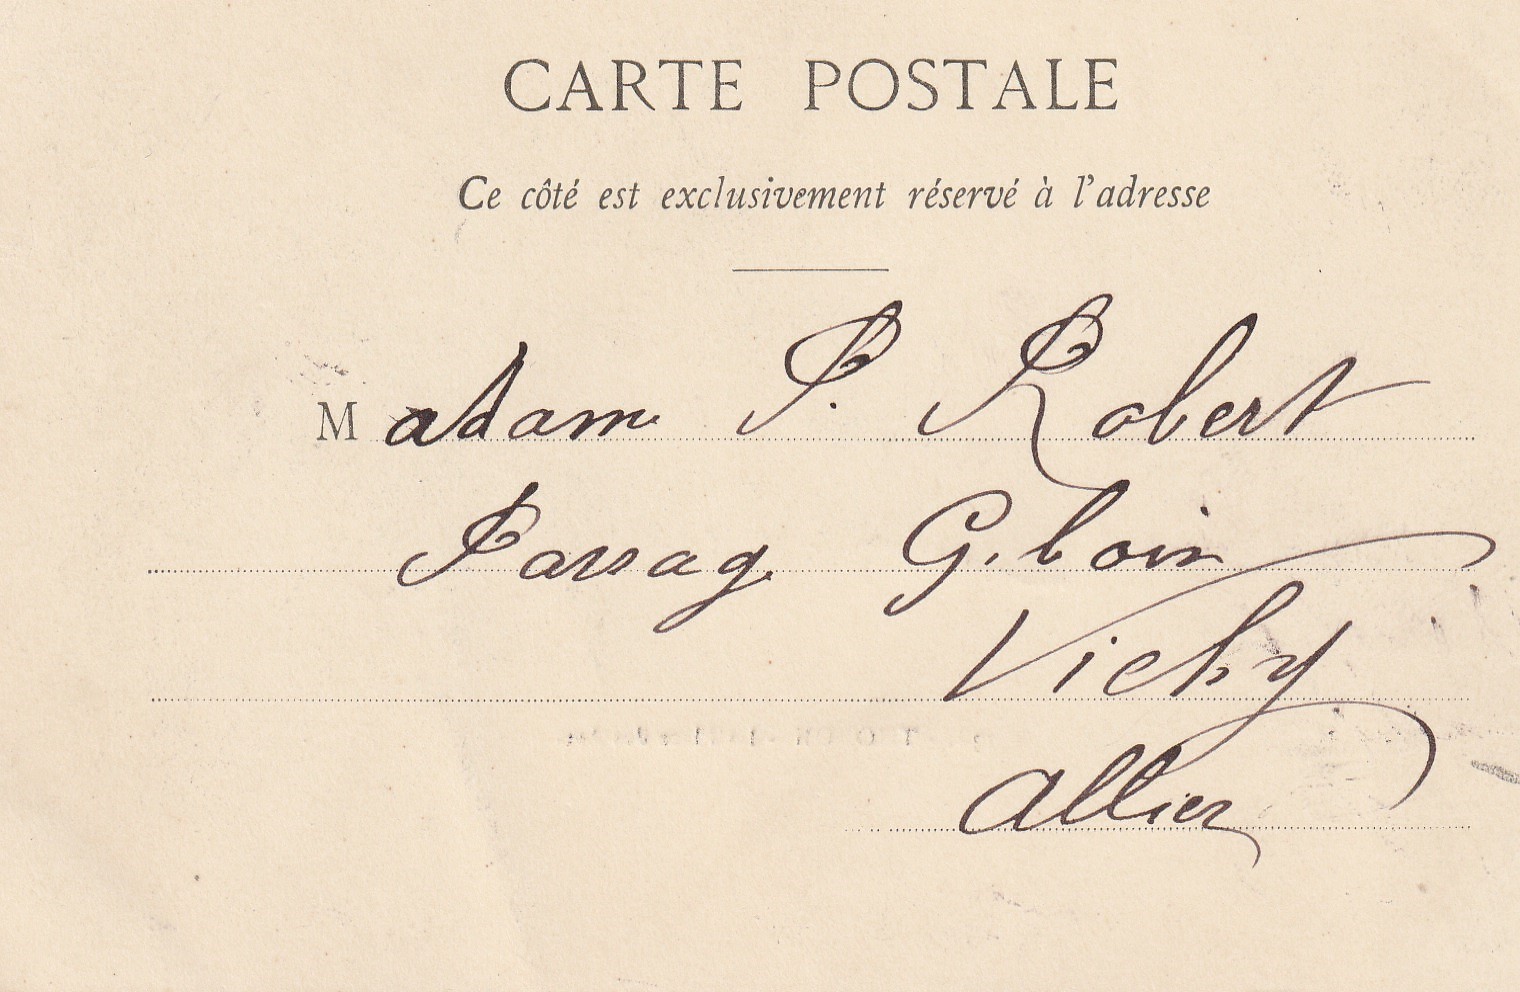 CARTE POSTALE
Ce côté est exclusivement réservé à l'adresse
Madam P. Robert
Passag. G.boin
Vichy
Allier